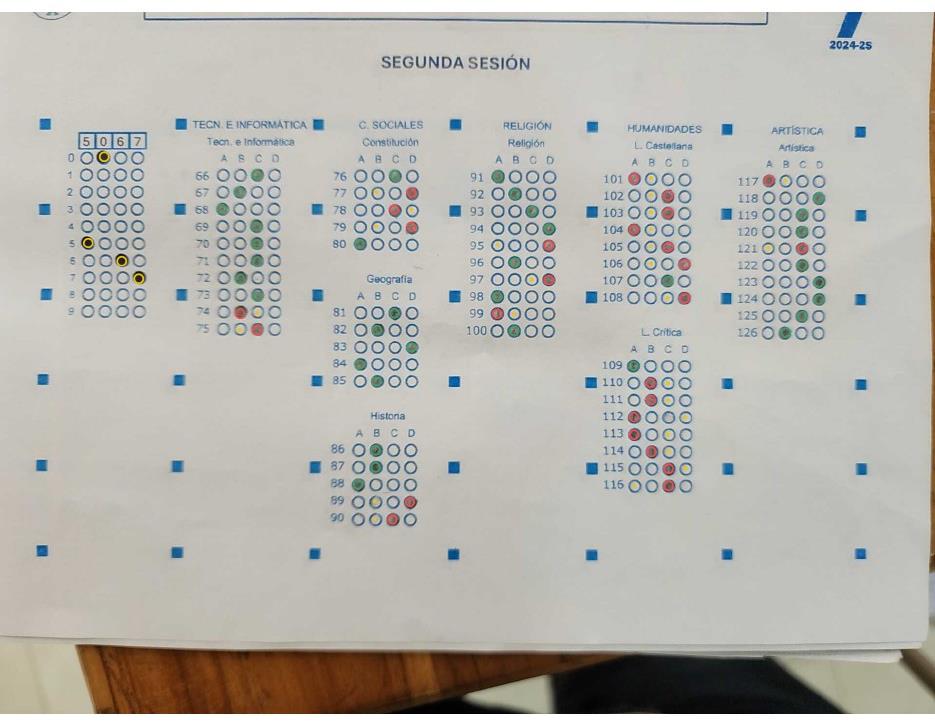 2024-25
SEGUNDA SESIÓN
5 0 6 7
0
1
2
3
4
5
6
7
8
9
TECN. E INFORMÁTICA
Tecn. e Informática
A B C D
66
67
68
69
70
71
72
73
74
75
C. SOCIALES
Constitución
A B C D
76
77
78
79
80
Geografía
A B C D
81
82
83
84
85
Historia
A B C D
86
87
88
89
90
RELIGIÓN
Religión
A B C D
91
92
93
94
95
96
97
98
99
100
HUMANIDADES
L. Castellana
A B C D
101
102
103
104
105
106
107
108
L. Crítica
A B C D
109
110
111
112
113
114
115
116
ARTÍSTICA
Artística
A B C D
117
118
119
120
121
122
123
124
125
126